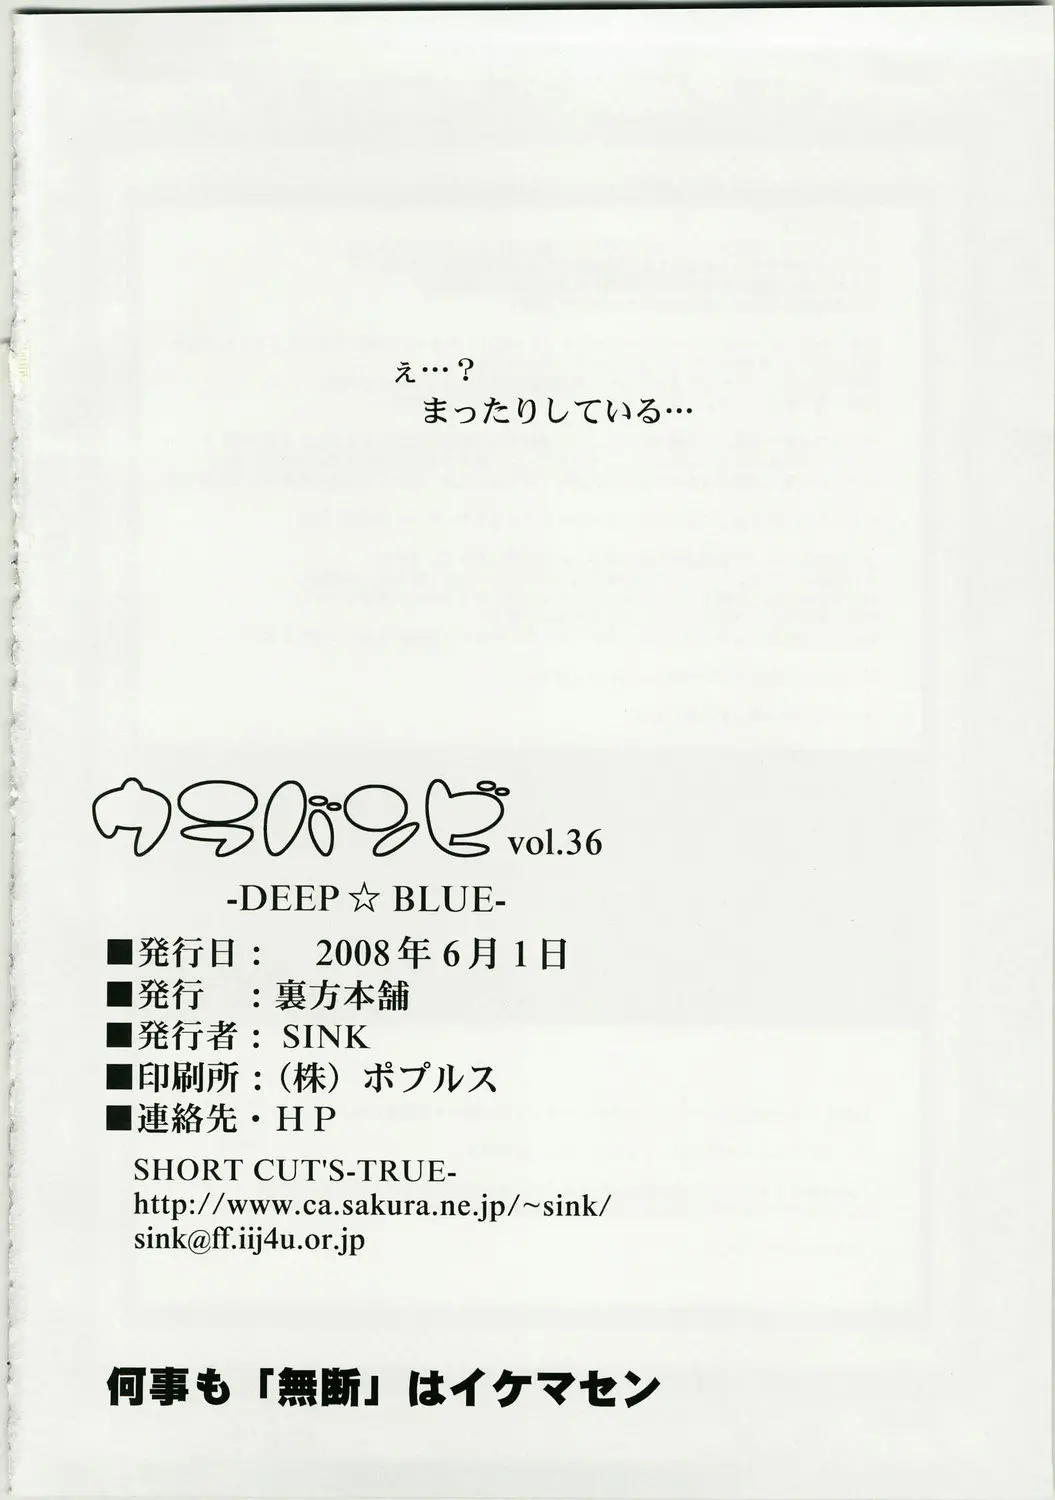 ぇ…？
まったりしている…
ウラバンビ vol.36
-DEEP☆BLUE-
■発行日：　2008年6月1日
■発行　：裏方本舗
■発行者：SINK
■印刷所：（株）ポプルス
■連絡先・ＨＰ
SHORT CUT'S-TRUE-
http://www.ca.sakura.ne.jp/~sink/
sink@ff.iij4u.or.jp
何事も「無断」はイケマセン